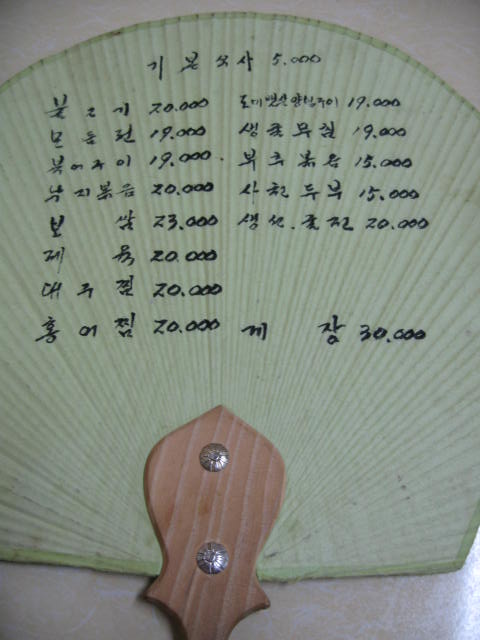 기본식사 5.000
불고기 20.000
모듬전 19.000
북어구이 19.000
낙지볶음 20.000
보쌈 23.000
제육 20.000
대구찜 20.000
홍어찜 20.000
도미뱃살양념구이 19.000
생굴무침 19.000
부추볶음 15.000
사천두부 15.000
생선.굴전 20.000
게장 30.000